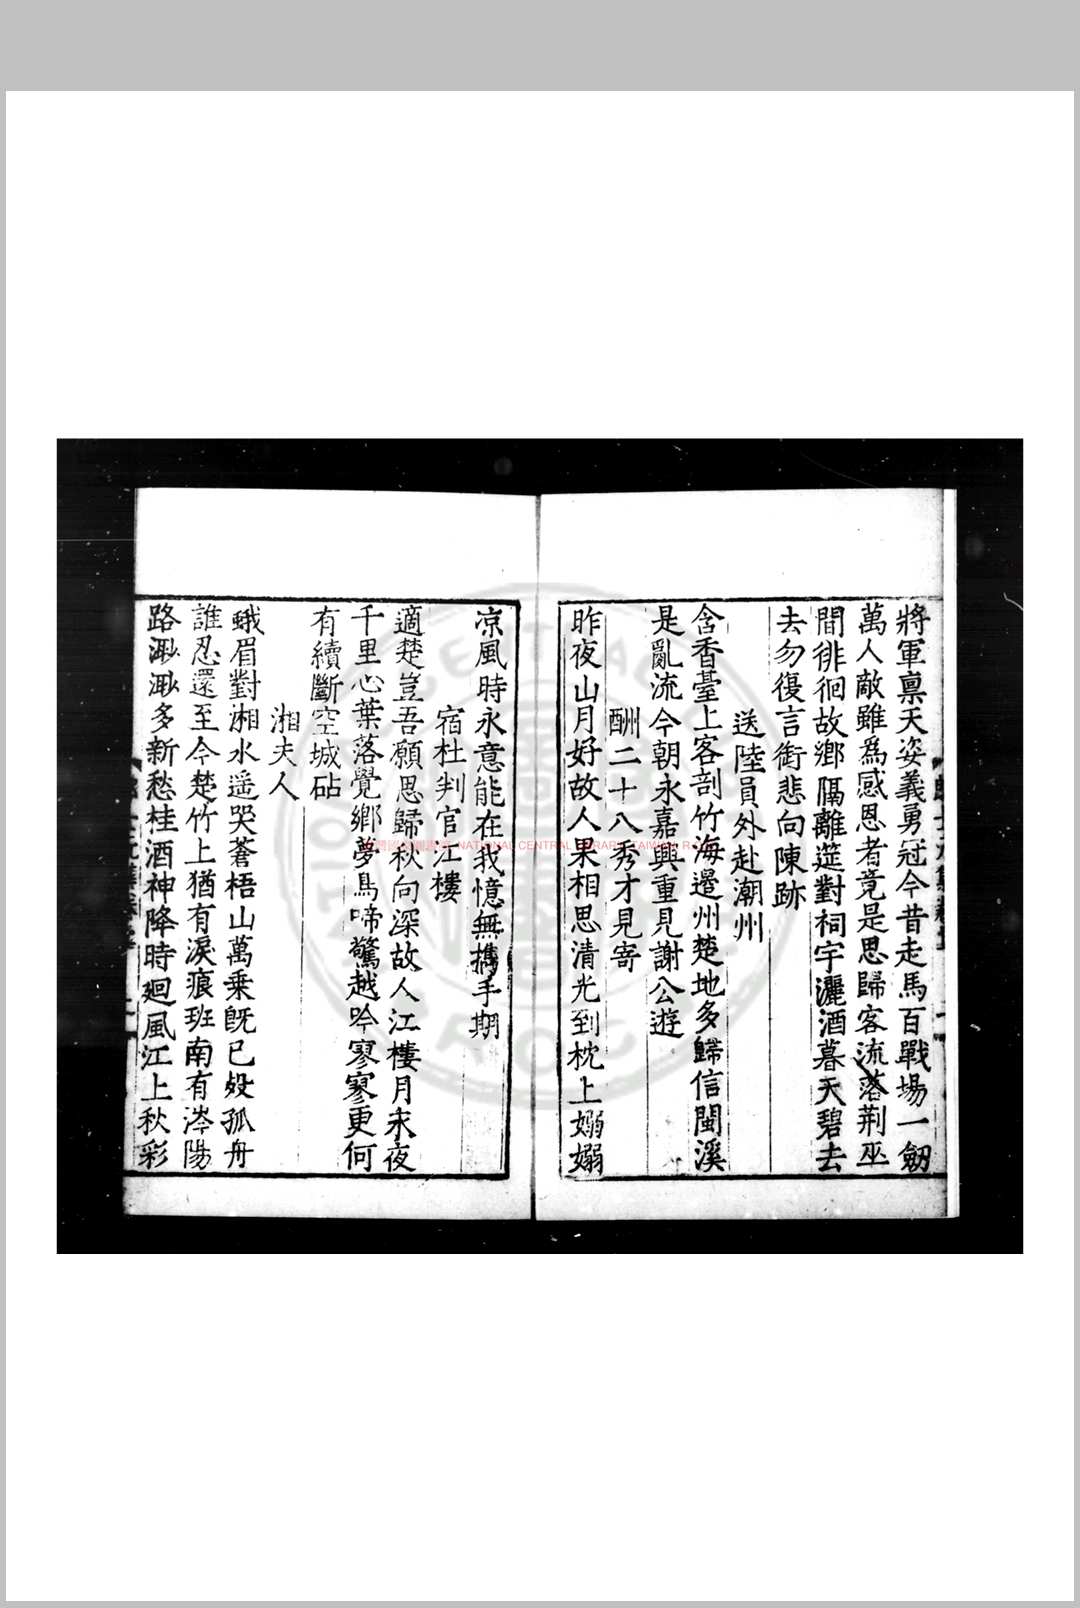 將軍禀天姿義勇冠今昔走馬百戰場一劒
萬人敵雖為感恩者竟是思歸客流落荆巫
間徘徊故鄉隔離筵對祠宇灑酒暮天碧去
去勿復言銜悲向陳跡
送陸員外赴潮州
含香臺上客剖竹海邊州楚地多歸信閩溪
是亂流今朝永嘉興重見謝公遊
酬二十八秀才見寄
昨夜山月好故人果相思清光到枕上嫋嫋
凉風時永意能在我憶無攜手期
宿杜判官江樓
適楚豈吾願思歸秋向深故人江樓月永夜
千里心葉落覺鄉夢鳥啼驚越吟寥寥更何
有續斷空城砧
湘夫人
蛾眉對湘水遥哭蒼梧山萬乗旣已殁孤舟
誰忍還至今楚竹上猶有淚痕班南有涔陽
路渺渺多新愁桂酒神降時廻風江上秋彩
NATIONAL CENTRAL LIBRARY, TAIWAN, R.O.C.